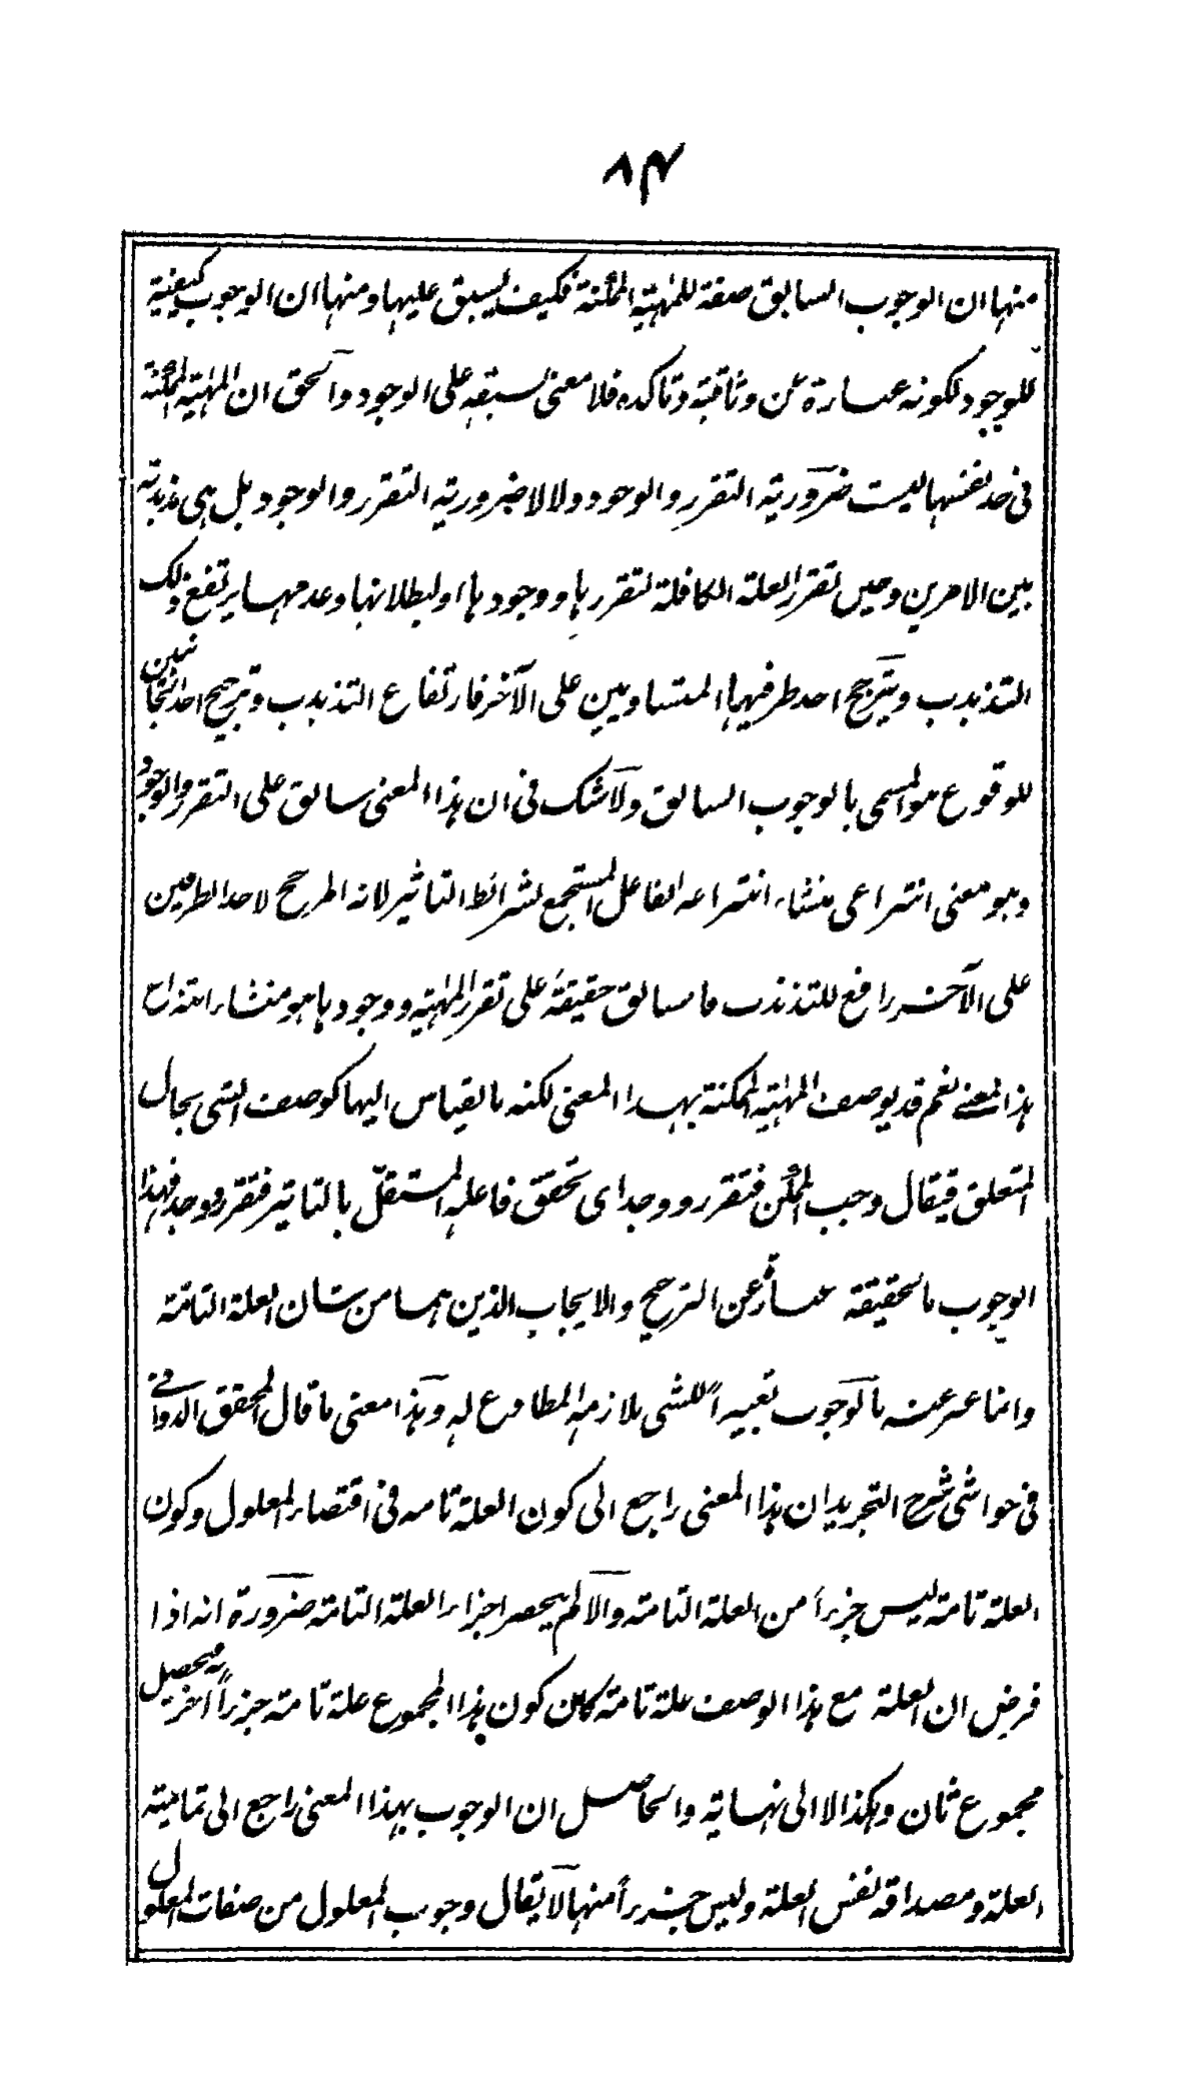 ٨٤
منها ان الوجوب السابق صفة للمهية الممكنة فكيف يسبق عليها ومنها ان الوجوب كيفية
للوجود لكونه عبارة عن وثاقته وتاكده فلا معنى لسبقه على الوجود والحق ان المهية الممكنة
فى حد نفسها ليست ضرورية التقرر والوجود ولا لا ضرورية التقرر والوجود بل هى مذبذبة
بين الامرين وحين تقرر العلة الكافلة لتقررها ووجودها او لبطلانها وعدمها يرتفع ذلك
التذبذب ويترجح احد طرفيها المتساويين على الآخر فارتفاع التذبذب وترجيح احد الجانبين
للوقوع هو المسمى بالوجوب السابق ولا شك فى ان هذا المعنى سابق على التقرر والوجود
وهو معنى انتزاعى منشاء انتزاعه الفاعل المستجمع لشرائط التاثير لانه المرجح لاحد الطرفين
على الآخر رافع للتذبذب فالسابق حقيقة على تقرر المهية ووجودها هو منشاء انتزاع
هذا المعنى نعم قد يوصف المهية الممكنة بهذا المعنى لكنه بالقياس اليها كوصف الشى بحال
المتعلق فيقال وجب الممكن فتقرر ووجد اى تحقق فاعله المستقل بالتاثير فتقرر ووجد فهذا
الوجوب بالحقيقة عبارة عن الترجيح والايجاب الذين هما من شان العلة التامة
وانما عبر عنه بالوجوب تعبيراً للشى بلازمه المطاوع له وهذا معنى ما قال المحقق الدوانى
فى حواشى شرح التجريد ان هذا المعنى راجع الى كون العلة تامة فى اقتضاء المعلول وكون
العلة تامة ليس جزءاً من العلة التامة والا لم يحصر اجزاء العلة التامة ضرورة انه اذا
فرض ان العلة مع هذا الوصف علة تامة كان كون هذا المجموع علة تامة جزءاً آخر فيحصل به
مجموع ثان وهكذا لا الى نهاية والحاصل ان الوجوب بهذا المعنى راجع الى تمامية
العلة ومصداقه نفس العلة وليس جزءاً منها لا يقال وجوب المعلول من صفات المعلول